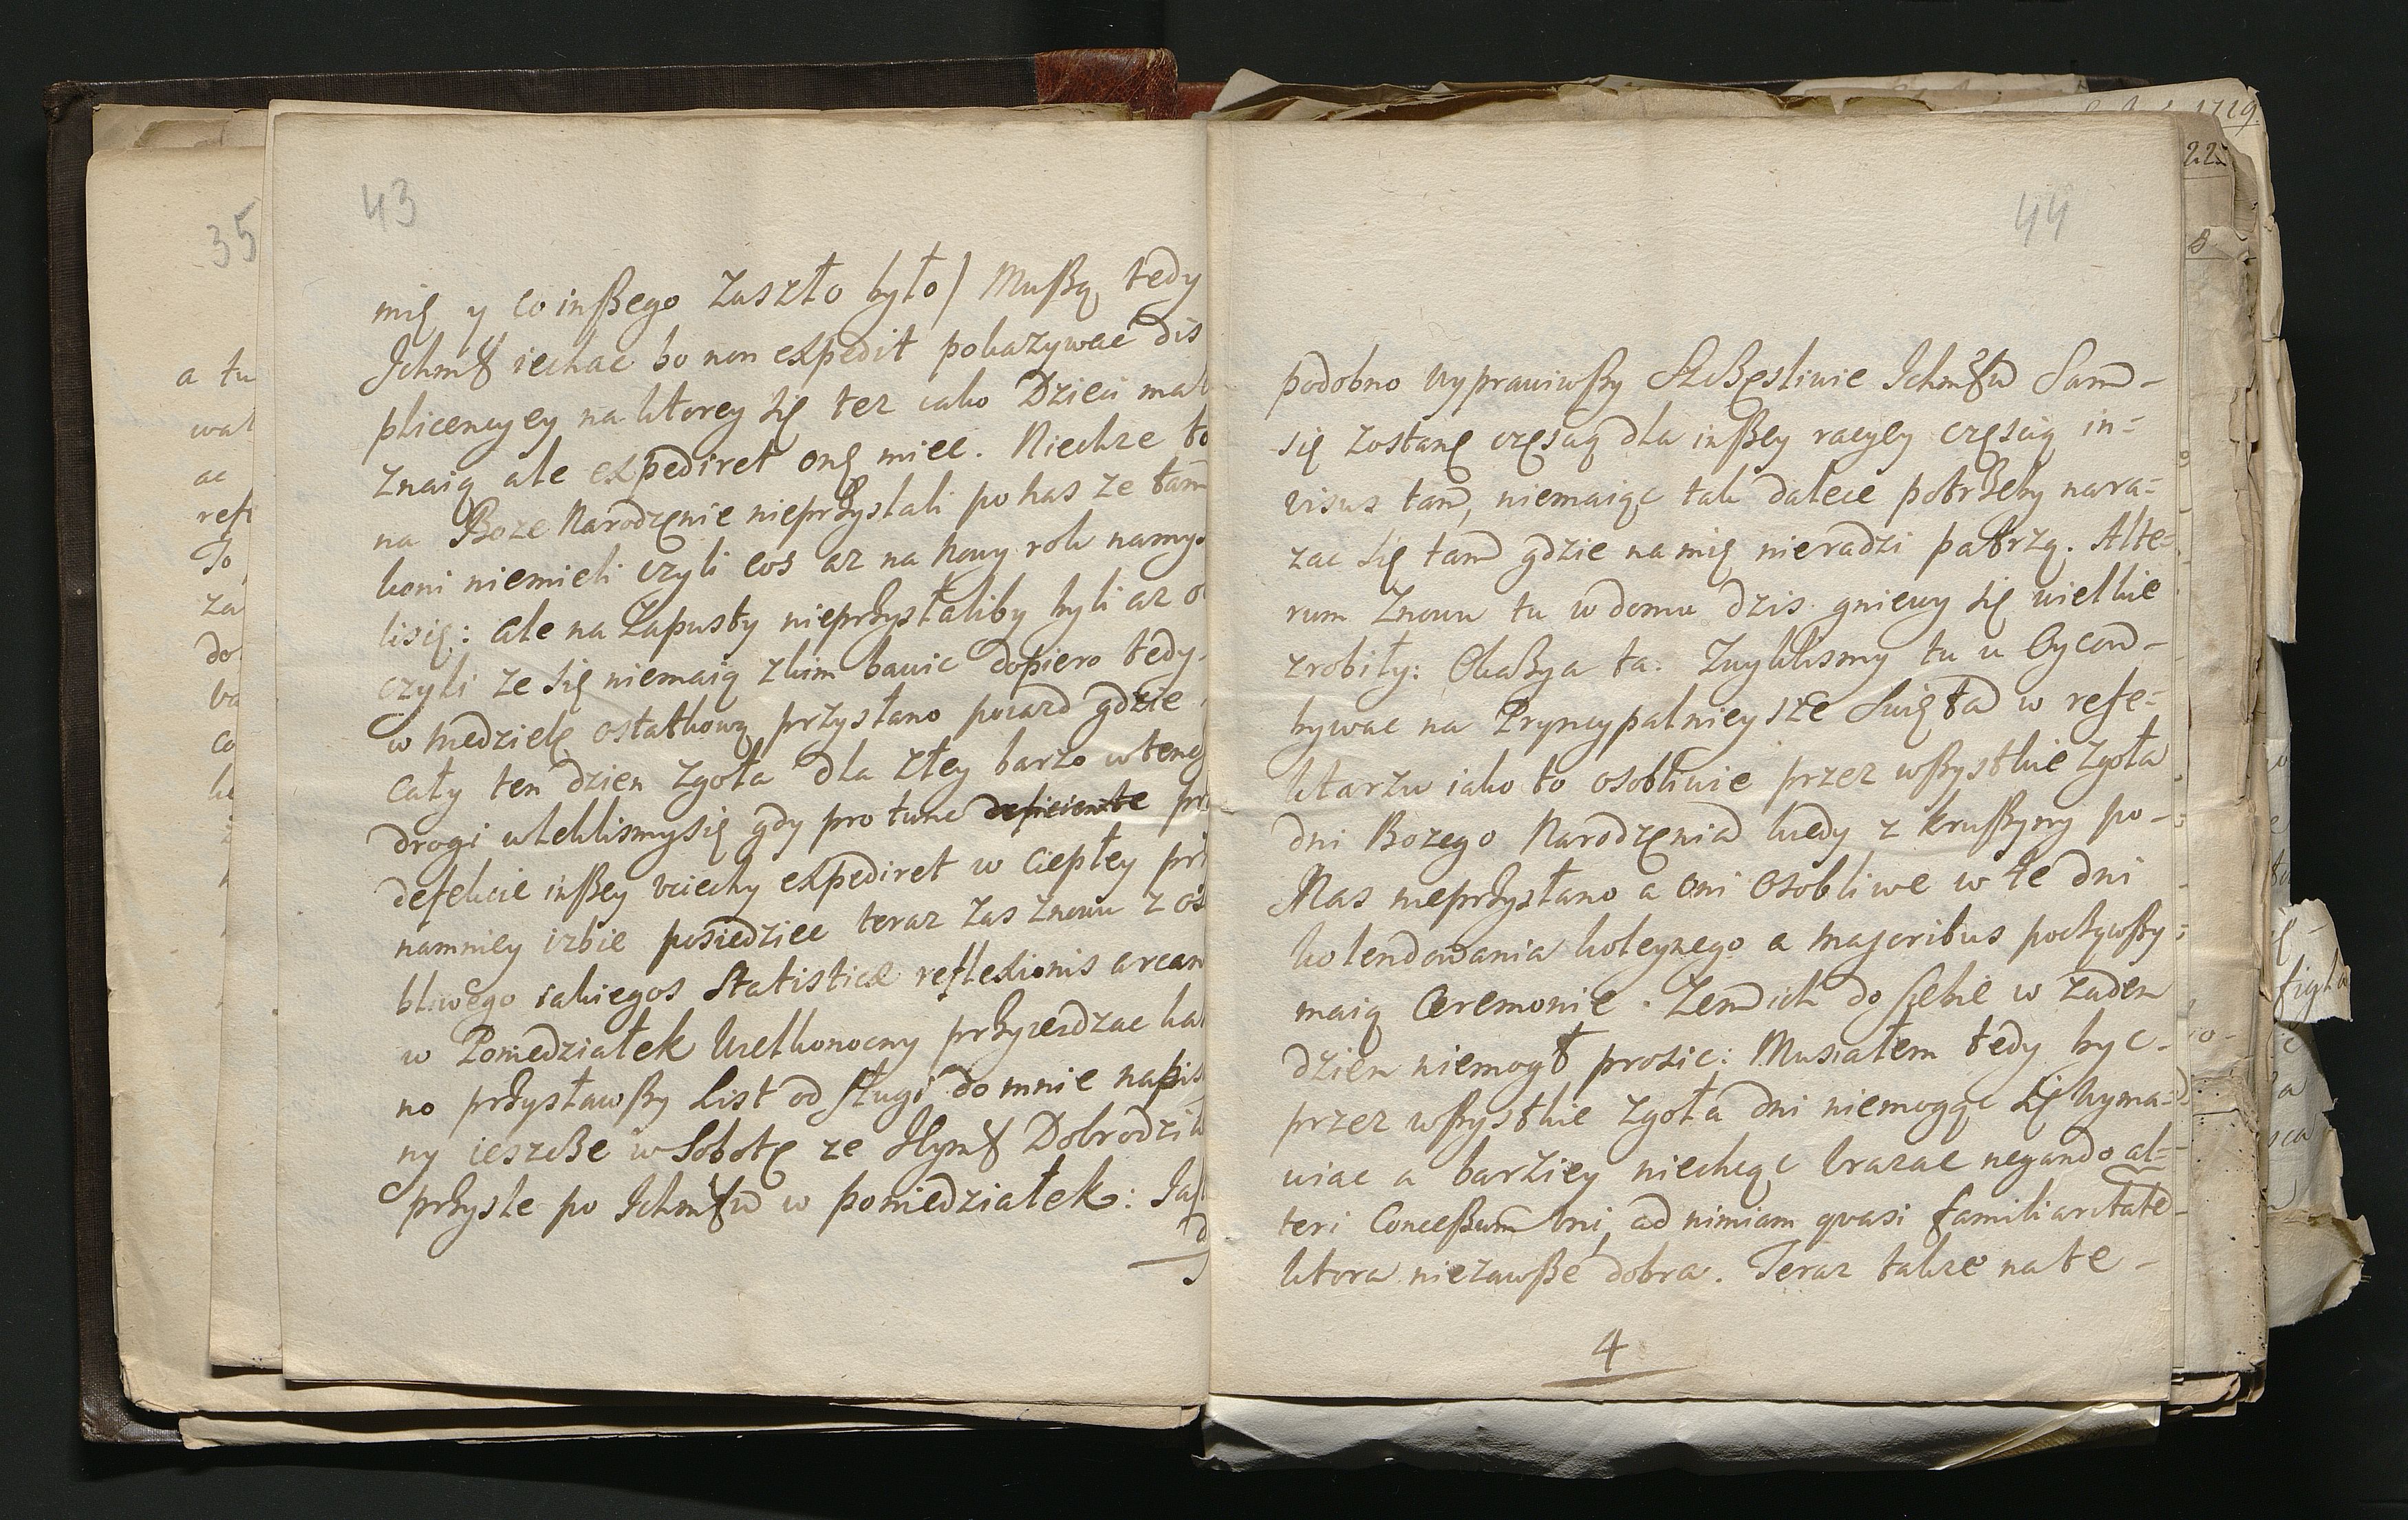 43
mię y co inßego Zaszło było) Mußą tedy
Ichmć iechac bo non expedit pokazywac dis
plicencyey na ktorey się tez iako Dzieci mał
Znaią ale expediret onę miec. Niechze to
na Boze Narodzenie nieprzysłali po nas ze tam
koni niemieli czyli cos az na Nowy rok namys
lisię: ale na Zapusty nieprzysłaliby byli az o
czyli ze się niemaią zkim bawic dopiero tedy
w Niedzielę ostatkową przysłano poiazd gdzie
Cały ten dzien zgoła dla złey barzo wtenc
drogi wleklismysię gdy pro tunc deficiente pr
defekcie inßey vciechy expediret w Ciepłey pri
namniey izbie posiedziec teraz zas znowu z os
bliwego iakiegos Statisticæ reflexionis arcan
w Poniedziałek Wielkonocny przyiezdzac ka
no przysławßy List od sługi do mnie napis
ny ieszcße w Sobotę ze Jeymć Dobrodzik
przysle po Ichmćiw w poniedziałek: Ja
44
podobno wyprawiwßy Szcßęsliwie Ichmćiw Sam
się zostanę częscią dla inßey racyey częscią in=
visus tam, niemaiąc tak dalece potrzeby nara=
zac się tam gdzie namię nieradzi patrzą. Alte=
rum Znowu tu w domu dzis gniewy się wielkie
zrobiły: Okaßya ta: Zwyklismy tu u Oycow
bywac na Pryncypalnieysze Swięta w refe=
ktarzu iako to osobliwie przez wßystkie Zgoła
dni Bozego Narodzenia kiedy z Krußyny po
Nas nieprzysłano a oni Osobliwe w te dni
kolendowania koleynego a majoribus poczywßy
maią Ceremonie. Zem ich do siebie w zaden
dzien niemogł prosic: Musiałem tedy byc
przez wßystkie Zgoła dni niemogąc się wyma=
wiac a barziey niechcąc vrazac negando al=
teri Conceßum vni, ad nimiam qvasi familiaritatē
ktora niezawße dobra. Teraz takze na te
4